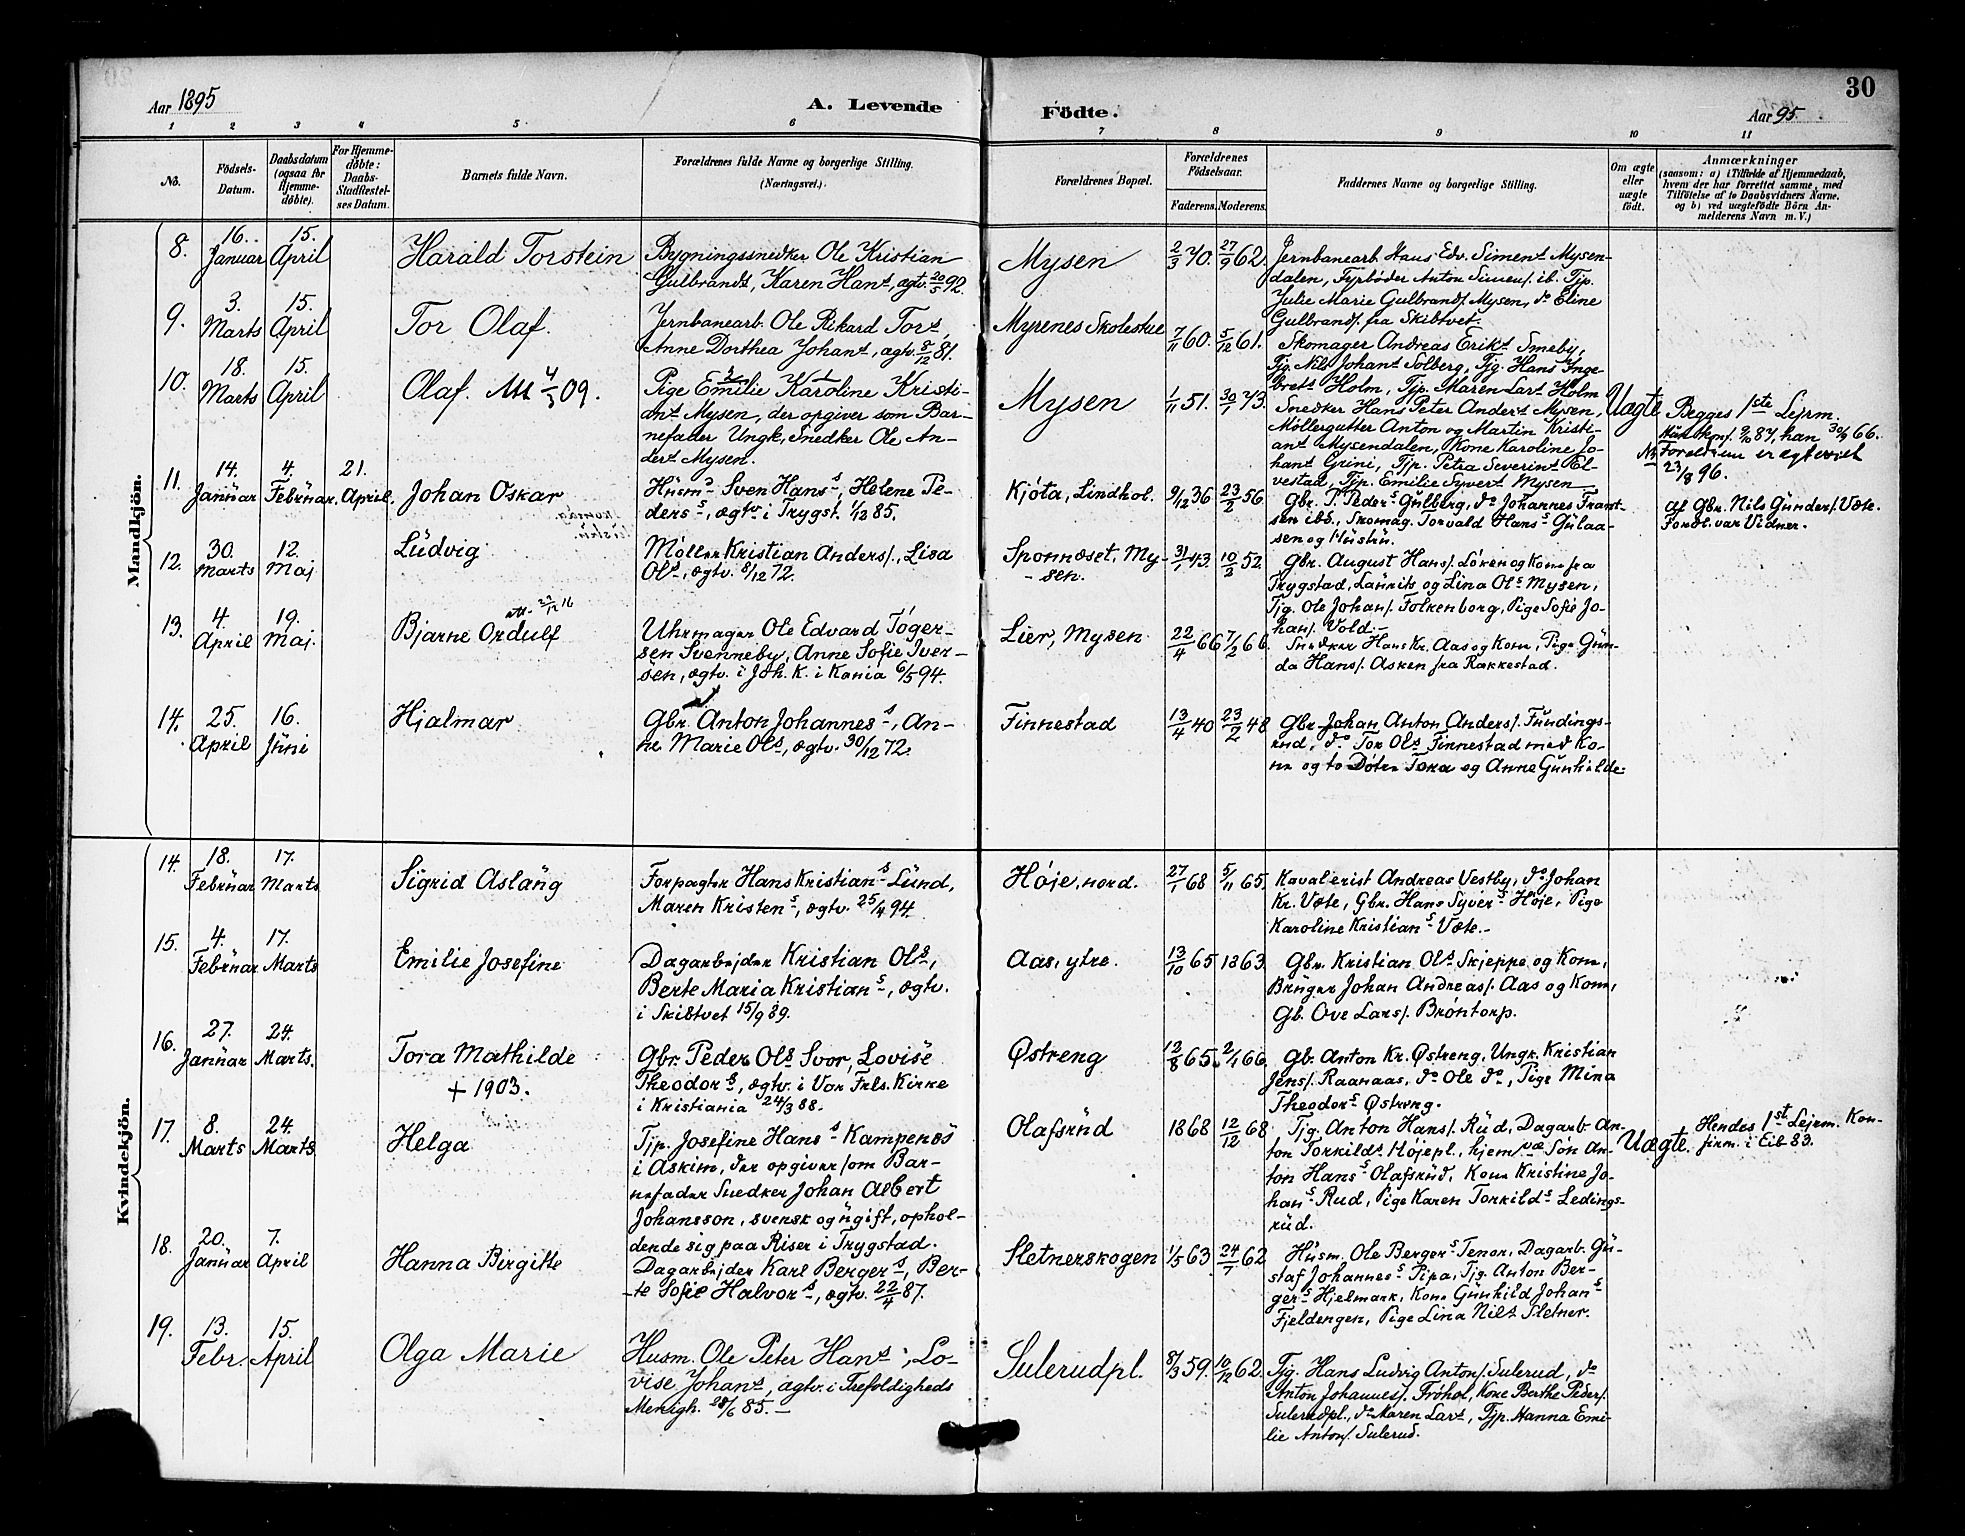 Aar 1895
A. Levende
Födte.
Aar 95.
30
1 2 3 4 5 6 7 8 9 10 11
No.
Födsels-
Datum.
Daabsdatum
(ogsaa for
Hjemme-
døbte).
For Hjemme-
døbte:
Daabs-
Stadfæstel-
ses Datum.
Barnets fulde Navn.
Forældrenes fulde Navne og borgerlige Stilling.
(Næringsvei.)
Forældrenes Bopæl.
Forældrenes
Födselsaar.
Faderens. Moderens.
Faddernes Navne og borgerlige Stilling.
Om ægte
eller
uægte
födt.
Anmærkninger
(saasom: a) i Tilfælde af Hjemmedaab,
hvem der har forrettet samme, med
Tilföielse af to Daabsvidners Navne,
og b) ved uægtefödte Börn An-
melderens Navn m. V.)
Mandkjön.
8.
16. Januar
15. April
Harald Torstein
Bygningssnedker Ole Kristian
Gulbrands, Karen Hans, ægtv. 20/5 92.
Mysen
2/3 70.
27/9 62.
Jernbanearb. Hans Edv. Simens Mysen-
dalen, Fyrbøder Anton Simens. ib. Tjp.
Julie Marie Gulbrands. Mysen, do Eline
Gulbrands. fra Skibtvet.
9.
3. Marts
15. April
Tor Olaf.
Jernbanearb. Ole Rikard Tors,
Anne Dorthea Johans, ægtv. 8/12 81.
Myrenes Skolestue
7/11 60.
5/12 61.
Skomager Andreas Eriks Smeby,
Tjg. Nils Johans Solberg, Tjg. Hans Inge-
brets Holm, Tjp. Maren Lars Holm
10.
18. Marts
15. April
Olaf. Att 4/3 09.
Pige Emilie Karoline Kristi-
ans Mysen, der opgiver som Bar-
nefader Ungk, Snedker Ole An-
ders Mysen.
Mysen
1/11 51.
30/1 73.
Snedker Hans Peter Anders Mysen,
Møllergutter Anton og Martin Kristi-
ans Mysendalen, Kone Karoline Jo-
hans Grini, Tjp. Petra Severins El-
vestad, Tjp. Emilie Syvers Mysen
Uægte
Begges 1ste Lejrm.
Hun konf. 2/10 87, han 30/9 66.
NB Forældrene er ægteviet
23/8 96.
11.
14. Januar
4. Februar.
21. April.
Johan Oskar
Husmd Sven Hanss, Helene Pe-
ders, ægtv i Trygst. 1/12 85.
Kjøta, Lindhol.
9/12 36
23/2 56
Gbr. P. Peders Gulberg, do Johannes Frant-
sen ibd., Skomag. Torvald Hanss Gulaa-
sen og Hustru.
af Gbr. Nils Gunders. Væte.
Fordl. var Vidner.
12.
30. Marts
12. Maj
Ludvig
Møller Kristian Anders., Lisa
Ols, ægtv. 8/12 72.
Sponnæset, My-
sen.
31/1 43.
10/3 52
Gbr. August Hans. Løken og Kone fra
Trygstad, Laurits og Lina Ols Mysen,
Tjg. Ole Johan. Folkenborg, Pige Sofie Jo-
hans. Vold.
13.
4. April
19. Maj.
Bjarne Ordulf
att. 22/12 16
Uhrmager Ole Edvard Tøger-
sen Svenneby, Anne Sofie Iver-
sen, ægtv. i Joh. K. i Kania 6/5 94.
Lier, Mysen
22/4 66
7/2 66.
Snedker Hans Kr. Aas og Kone, Pige Gun-
da Hans. Asken fra Rakkestad.
14.
25. April
16. Juni
Hjalmar
Gbr. Anton Johanness, An-
ne Marie Ols, ægtv. 30/12 72.
Finnestad
13/4 40
23/2 48
Gbr. Johan Anton Anders. Fundings-
rud, do Tor Ols Finnestad med Ko-
ne og to Døtre Tora og Anne Gunhilde.
Kvindekjön.
14.
18. Februar
17. Marts
Sigrid Aslaug
Forpagter Hans Kristians Lund,
Maren Kristens, ægtv. 25/4 94.
Høje, nord.
27/1 68
5/11 65.
Kavalerist Andreas Vestby, do Johan
Kr. Væte, Gbr. Hans Syvers Høje, Pige
Karoline Kristians Væte.
15.
4. Februar
17. Marts
Emilie Josefine
Dagarbejder Kristian Ols,
Berte Maria Kristians, ægtv.
i Skibtvet 15/9 89.
Aas, ytre.
13/10 65
1863.
Gbr. Kristian Ols Skjeppe og Kone,
Bruger Johan Andreas. Aas og Kone,
Gb. Ove Lars. Brøntorp.
16.
27. Januar
24. Marts.
Tora Mathilde
+ 1903.
Gbr. Peder Ols Svor, Lovise
Theodors, ægtv. i Vor Frls. Kirke
i Kristiania 24/3 88.
Østreng
12/8 65.
2/1 66.
Gb. Anton Kr. Østreng, Ungk. Kristian
Jens. Raanaas, do Ole do, Pige Mina
Theodors Østreng.
17.
8. Marts
24. Marts
Helga
Tjp. Josefine Hans Kampenes
i Askim, der opgiver som Bar-
nefader Snedker Johan Albert
Johansson, svensk og ugift, ophol-
dende sig paa Riser i Trygstad.
Olafsrud
1868
12/12 68
Tjg. Anton Hans. Rud, Dagarb. An-
ton Torkilds Højepl., hjemvæ Søn An-
ton Hanss Olafsrud, Kone Kristine Jo-
hans Rud, Pige Karen Torkilds Ledings-
rud.
Uægte.
Hendes 1st Lejrm. Kon-
firm. i Eib 83.
18.
20. Januar
7. April
Hanna Birgitte
Dagarbejder Karl Bergers, Ber-
te Sofie Halvors, ægtv. 22/4 87.
Sletnerskogen
1/5 63
24/7 62
Husm. Ole Bergers Tenor, Dagarb. Gu-
staf Johanness Pipa, Tjg. Anton Ber-
gers Hjelmark, Kone Gunhild Johans
Fjeldengen, Pige Lina Nils Sletner.
19.
13. Febr.
15. April
Olga Marie
Husm. Ole Peter Hans, Lo-
vise Johans, ægtv. i Trefoldigheds
Menigh. 28/6 85.
Sulerudpl.
8/3 59.
10/12 62.
Tjg. Hans Ludvig Anton. Sulerud, do
Anton Johannes. Frøhol, Kone Berthe Peders.
Sulerudpl., do Maren Lars, Tjp. Hanna Emi-
lie Antons. Sulerud.